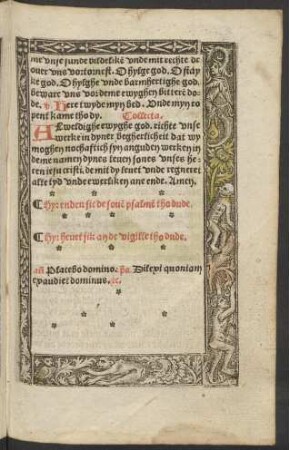 me vnse sunde billelike vnde mit rechte
ouer vns vortornest. O hylge god. O starke
god. O hylghe vnde barmhertighe god.
beware vns vor deme ewyghen bitteren do-
de. v. Here twyde myn bed. Vnde myn ro-
pent kame tho dy. Collecta.
Alweldighe ewyghe god. richte vnse
werke in dyner begherlicheit dat wy
moghen nochaftich syn anguden werken in
deme namen dynes leuen sones vnses he-
ren iesu cristi. de mit dy leuet vnde regneret
alle tyd vnde ewelken ane ende. Amen.
¶ Hyr enden sik de souen psalmi tho dude.
¶ Hyr heuet sik an de vigilie tho dude.
añ Placebo domino. ps. Dilexi quoniam
exaudiet dominus. ec.